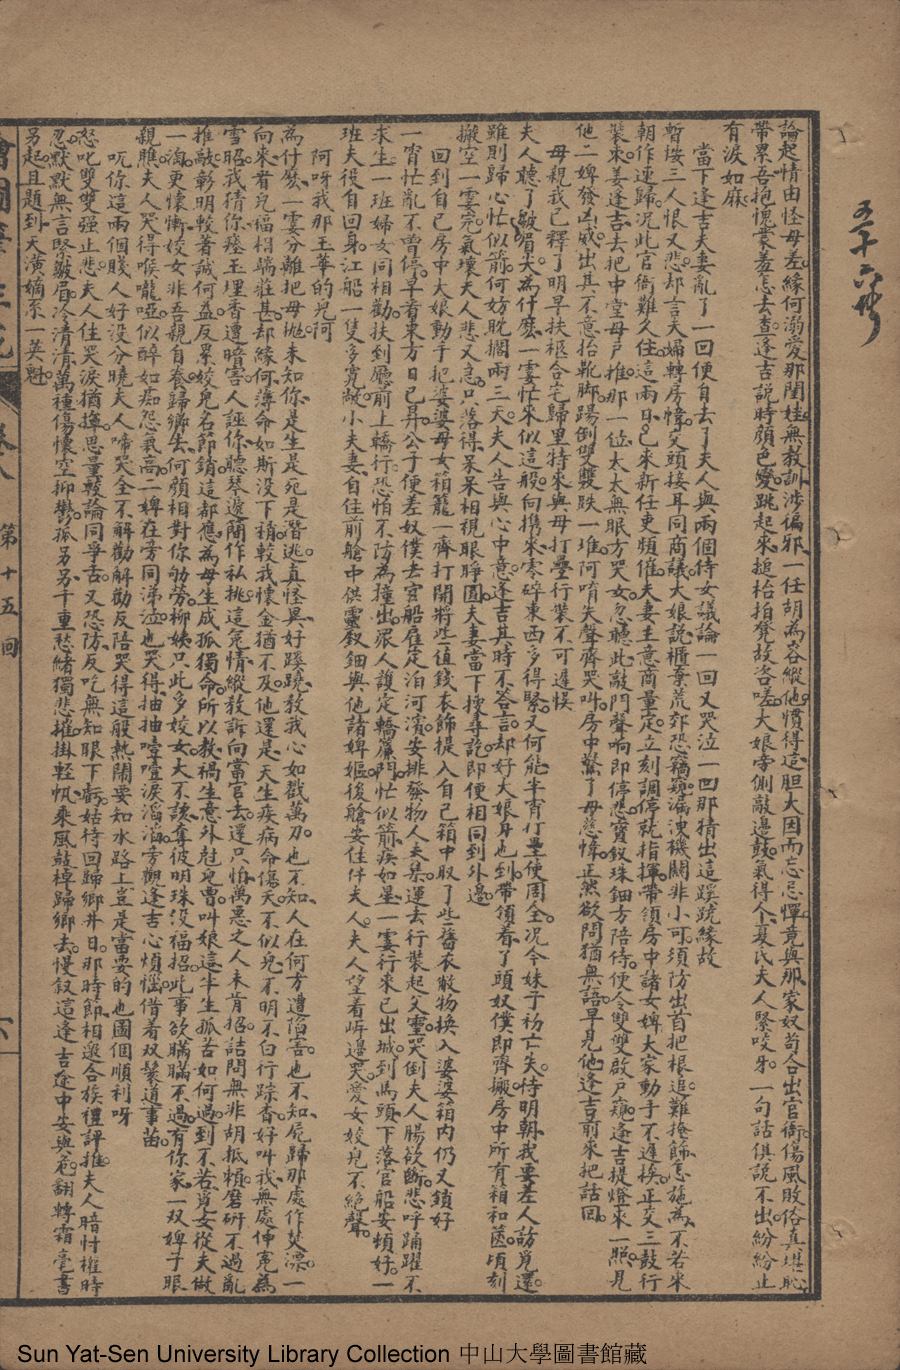 五十六冊
論起情由怪母差緣何溺愛那閨桂無教訓涉偏邪一任胡為容縱他慣得這胆大因而忘忌憚竟與那家奴苟合出官衙傷風敗俗真堪恥
帶累吾抱愧蒙羞怎去查逢吉説時顔色變跳起來搥枱拍凳故咨嗟大娘旁側敲邊鼓氣得个夏氏夫人緊咬牙一句話俱説不出紛紛止
有淚如麻
當下逢吉夫妻亂了一回便自去了夫人與兩個侍女議論一回又哭泣一回那猜出這蹊蹺緣故
暫按三人恨又悲却言夫婦轉房幃交頭接耳同商議大娘説櫃棄荒郊恐竊窺漏洩機關非小可須防出首把根追難掩飾怎施為不若來
朝作速歸況此官衙難久住這兩日已來新任吏頻催夫妻主意商量定立刻調停就指揮帶領房中諸女婢大家動手不遲挨正交三鼓行
裝來姜逢吉去把中堂母戶推那一位太太無眠方哭女忽聽此敲門聲响即停悲寶釵珠鈿方陪侍便令雙雙啟戶窺逢吉提燈來一照見
他二婢發凶威出其不意抬靴脚踢倒雙雙跌一堆阿唷失聲齊哭叫房中驚了母慈幃正然欲問猶無語早見他逢吉前來把話回
母親我已釋了明早扶柩合宅歸里特來與母打疊行裝不可遲悞
夫人聽了皺眉尖為什麽一霎忙來似這般向携來零碎東西多得緊又何能半宵打疊使周全況今妹子初亡失待明朝我要差人訪覓還
雖則歸心忙似箭何妨耽擱兩三天夫人告與心中意逢吉其時不答言却好大娘身也到帶領着了頭奴僕即齊搬房中所有箱和篋頃刻
搬空一霎完氣壞夫人悲又急只落得呆呆相視眼睜圓夫妻當下標尋訖即便相同到外邊
回到自已房中大娘動手把婆婆母女箱籠一齊打開將些值錢衣飾提入自己箱中取了些舊衣敝物换入婆婆箱内仍又鎖好
一宵忙亂不曾停早看東方日已昇公子便差奴僕去官船雇定泊河濱安排發物人夫集運去行裝起父靈哭倒夫人腸欲斷悲呼踊躍不
求生一班婦女同相勸扶到廳前上轎行恐怕不防為撞出眾人護定轎簾門忙似箭疾如星一霎行來已出城到馬頭下落官船安頓好一
班夫役有回身江船一隻多寬敞小夫妻自住前艙中供靈釵鈿與他諸婢嫗後艙安住伴夫人夫人望着岍邊哭愛女姣兒不絶聲
阿呀我那玉華的兒阿
為什麽一霎分離把母抛未知你是生是死是潛逃真怪異好蹊蹺教我心如戳萬刃也不知人在何方遭陷害也不知屍歸那處作焚漂一
向來看兒福相端莊甚却緣何薄命如斯没下稍較我懷金猶不及他還是天生疾病命傷夭不似兒不明不白行踪杳好叫我無處伸寃為
雪昭我猜你瘞玉埋香遭暗害人誣你聽琴邀簡作私挑這冤情縱教訴向當官去還只怕萬惡之人未肯招詰問無非胡抵賴磨研不過亂
推敲彰明較著誠何益反累姣兒名節銷這都應為母生成孤獨命所以教禍生意外尅兒曹叫娘這半生孤苦如何過到不若覓女從夫做
一淘更懷慚姣女非吾親自養歸鄉去何顔相對你劬勞柳姨只此多姣女大不該奪彼明珠没福招此事欲瞞瞞不過有你家一双婢子眼
親瞧夫人哭得喉嚨啞似醉如痴怨氣高二婢在旁同涕泣也哭得抽抽噎噎淚滔滔旁觀逢吉心煩惱借着双鬟道事苗
吭你這兩個賤人好没分曉夫人啼哭全不解勸解勸反陪哭得這般熱鬧要知水路上豈是當耍的也圖個順利呀
怒叱雙雙强止悲夫人住哭淚猶揮思量較論同爭舌又恐防反吃無知眼下虧姑待回歸鄉井日那時節相邀合族禮評推夫人暗忖權時
忍默默無言緊皺眉冷清清萬種傷懷空抑鬱孤另另千重愁緒獨悲摧掛輕帆乘風鼓棹歸鄉去慢叙這逢吉途中安與危翻轉霜毫書
另起且題到天潢嫡系一英魁
卷八
第十五回
六
Sun Yat-Sen University Library Collection 中山大學圖書館藏